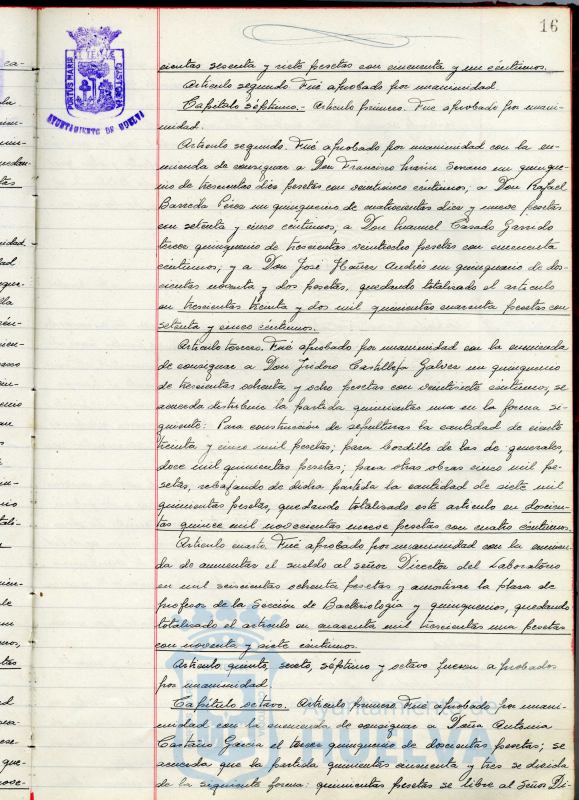 16
PORTUS MARIS ET TERRE CUSTODIA
AYUNTAMIENTO DE HUELVA
cientas sesenta y siete pesetas con cincuenta y un céntimos.
Artículo segundo. Fué aprobado por unanimidad.
Capítulo séptimo.- Artículo primero. Fué aprobado por unani-
midad.
Artículo segundo. Fué aprobado por unanimidad con la en-
mienda de consignar a Don Francisco Marín Serrano un quinque-
nio de trescientas diez pesetas con veinticinco céntimos; a Don Rafael
Barreda Pérez un quinquenio de cuatrocientas diez y nueve pesetas
con setenta y cinco céntimos; a Don Manuel Casado Garrido
tercer quinquenio de trescientas veintiocho pesetas con cincuenta
céntimos; y a Don José Ibáñez Andrés un quinquenio de dos-
cientas noventa y dos pesetas, quedando totalizado el artículo
en trescientas treinta y dos mil quinientas cuarenta pesetas con
setenta y cinco céntimos.
Artículo tercero. Fué aprobado por unanimidad con la enmienda
de consignar a Don Isidoro Castilleja Galvez un quinquenio
de trescientas ochenta y ocho pesetas con veintisiete céntimos, se
acuerda distribuir la partida quinientas una en la forma si-
guiente: Para construcción de sepulturas la cantidad de ciento
treinta y cinco mil pesetas; para bordillo de las de generales,
doce mil quinientas pesetas; para otras obras cinco mil pe-
setas, rebajando de dicha partida la cantidad de siete mil
quinientas pesetas, quedando totalizado este artículo en doscien-
tas quince mil novecientas nueve pesetas con cuatro céntimos.
Artículo cuarto. Fué aprobado por unanimidad con la enmien-
da de aumentar el sueldo al señor Director del Laboratorio
en mil seiscientas ochenta pesetas y amortizar la plaza de
profesor de la Sección de Bacteriología y quinquenios, quedando
totalizado el artículo en cuarenta mil trescientas una pesetas
con noventa y siete céntimos.
Artículo quinto, sexto, séptimo y octavo fueron aprobados
por unanimidad.
Capítulo octavo. Artículo primero. Fué aprobado por unani-
midad con la enmienda de consignar a Doña Antonia
Castaño García el tercer quinquenio de doscientas pesetas; se
acuerda que la partida quinientas cincuenta y tres se divida
de la siguiente forma: quinientas pesetas se libre al Señor Di-
Ayuntamiento de
HUELVA